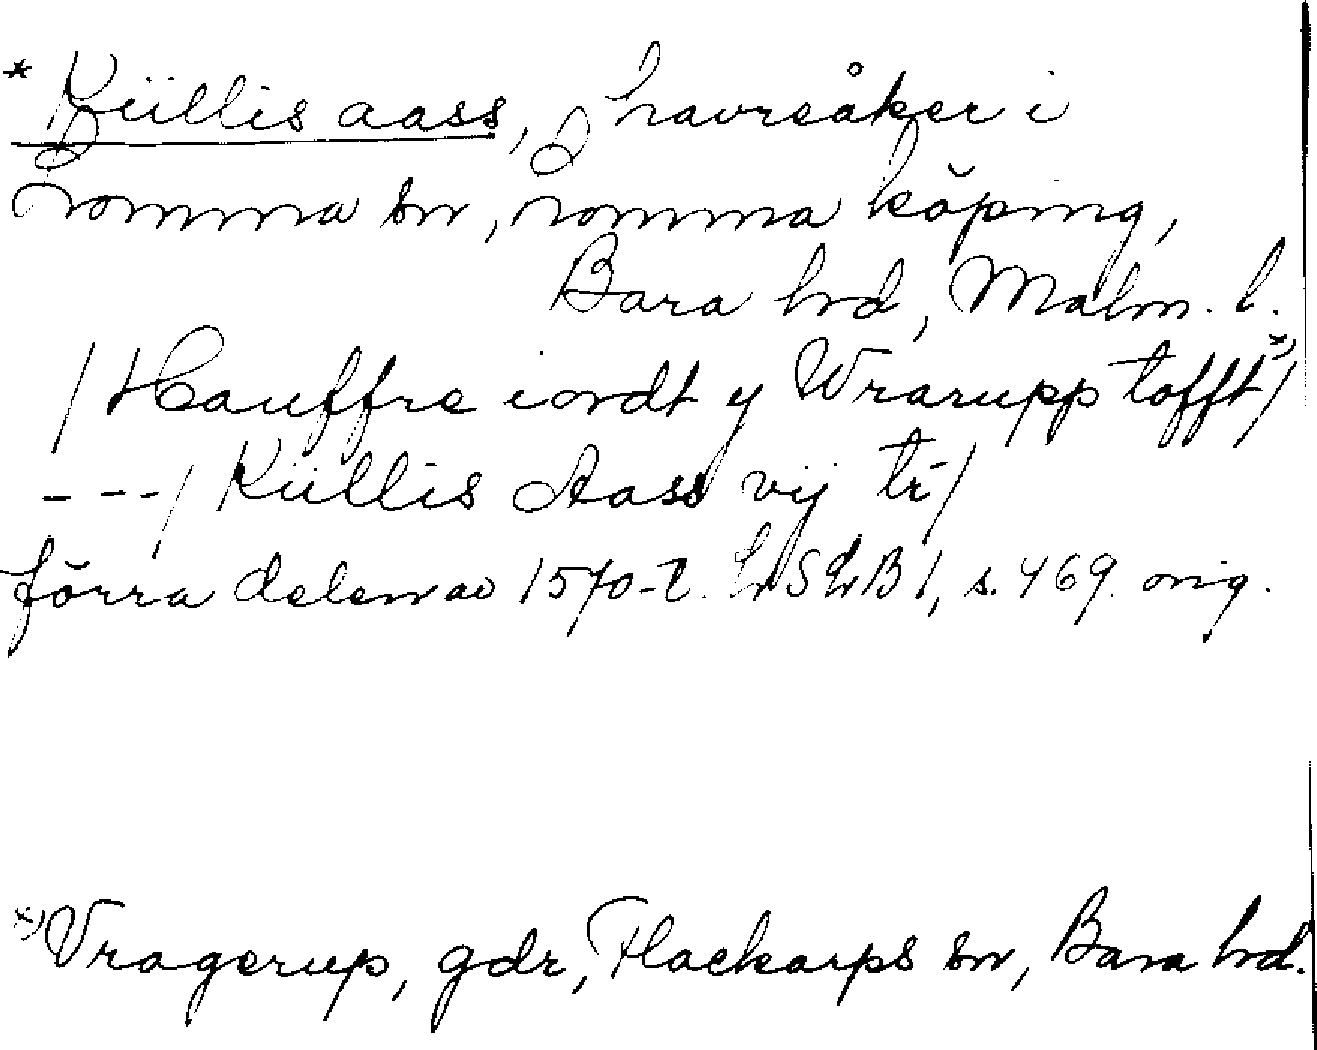 * Küllis aass, havreåker i
Lomma sn, Lomma köping,
Bara hd, Malm. l.
/ Hauffre iordt y Wrarupp tofft *) /
--- / Küllis Aass vij tr /
förra delen av 1570-t. LSLB 1, s. 469. orig.
*) Vragerup, gdr, Flackarps sn, Bara hd.